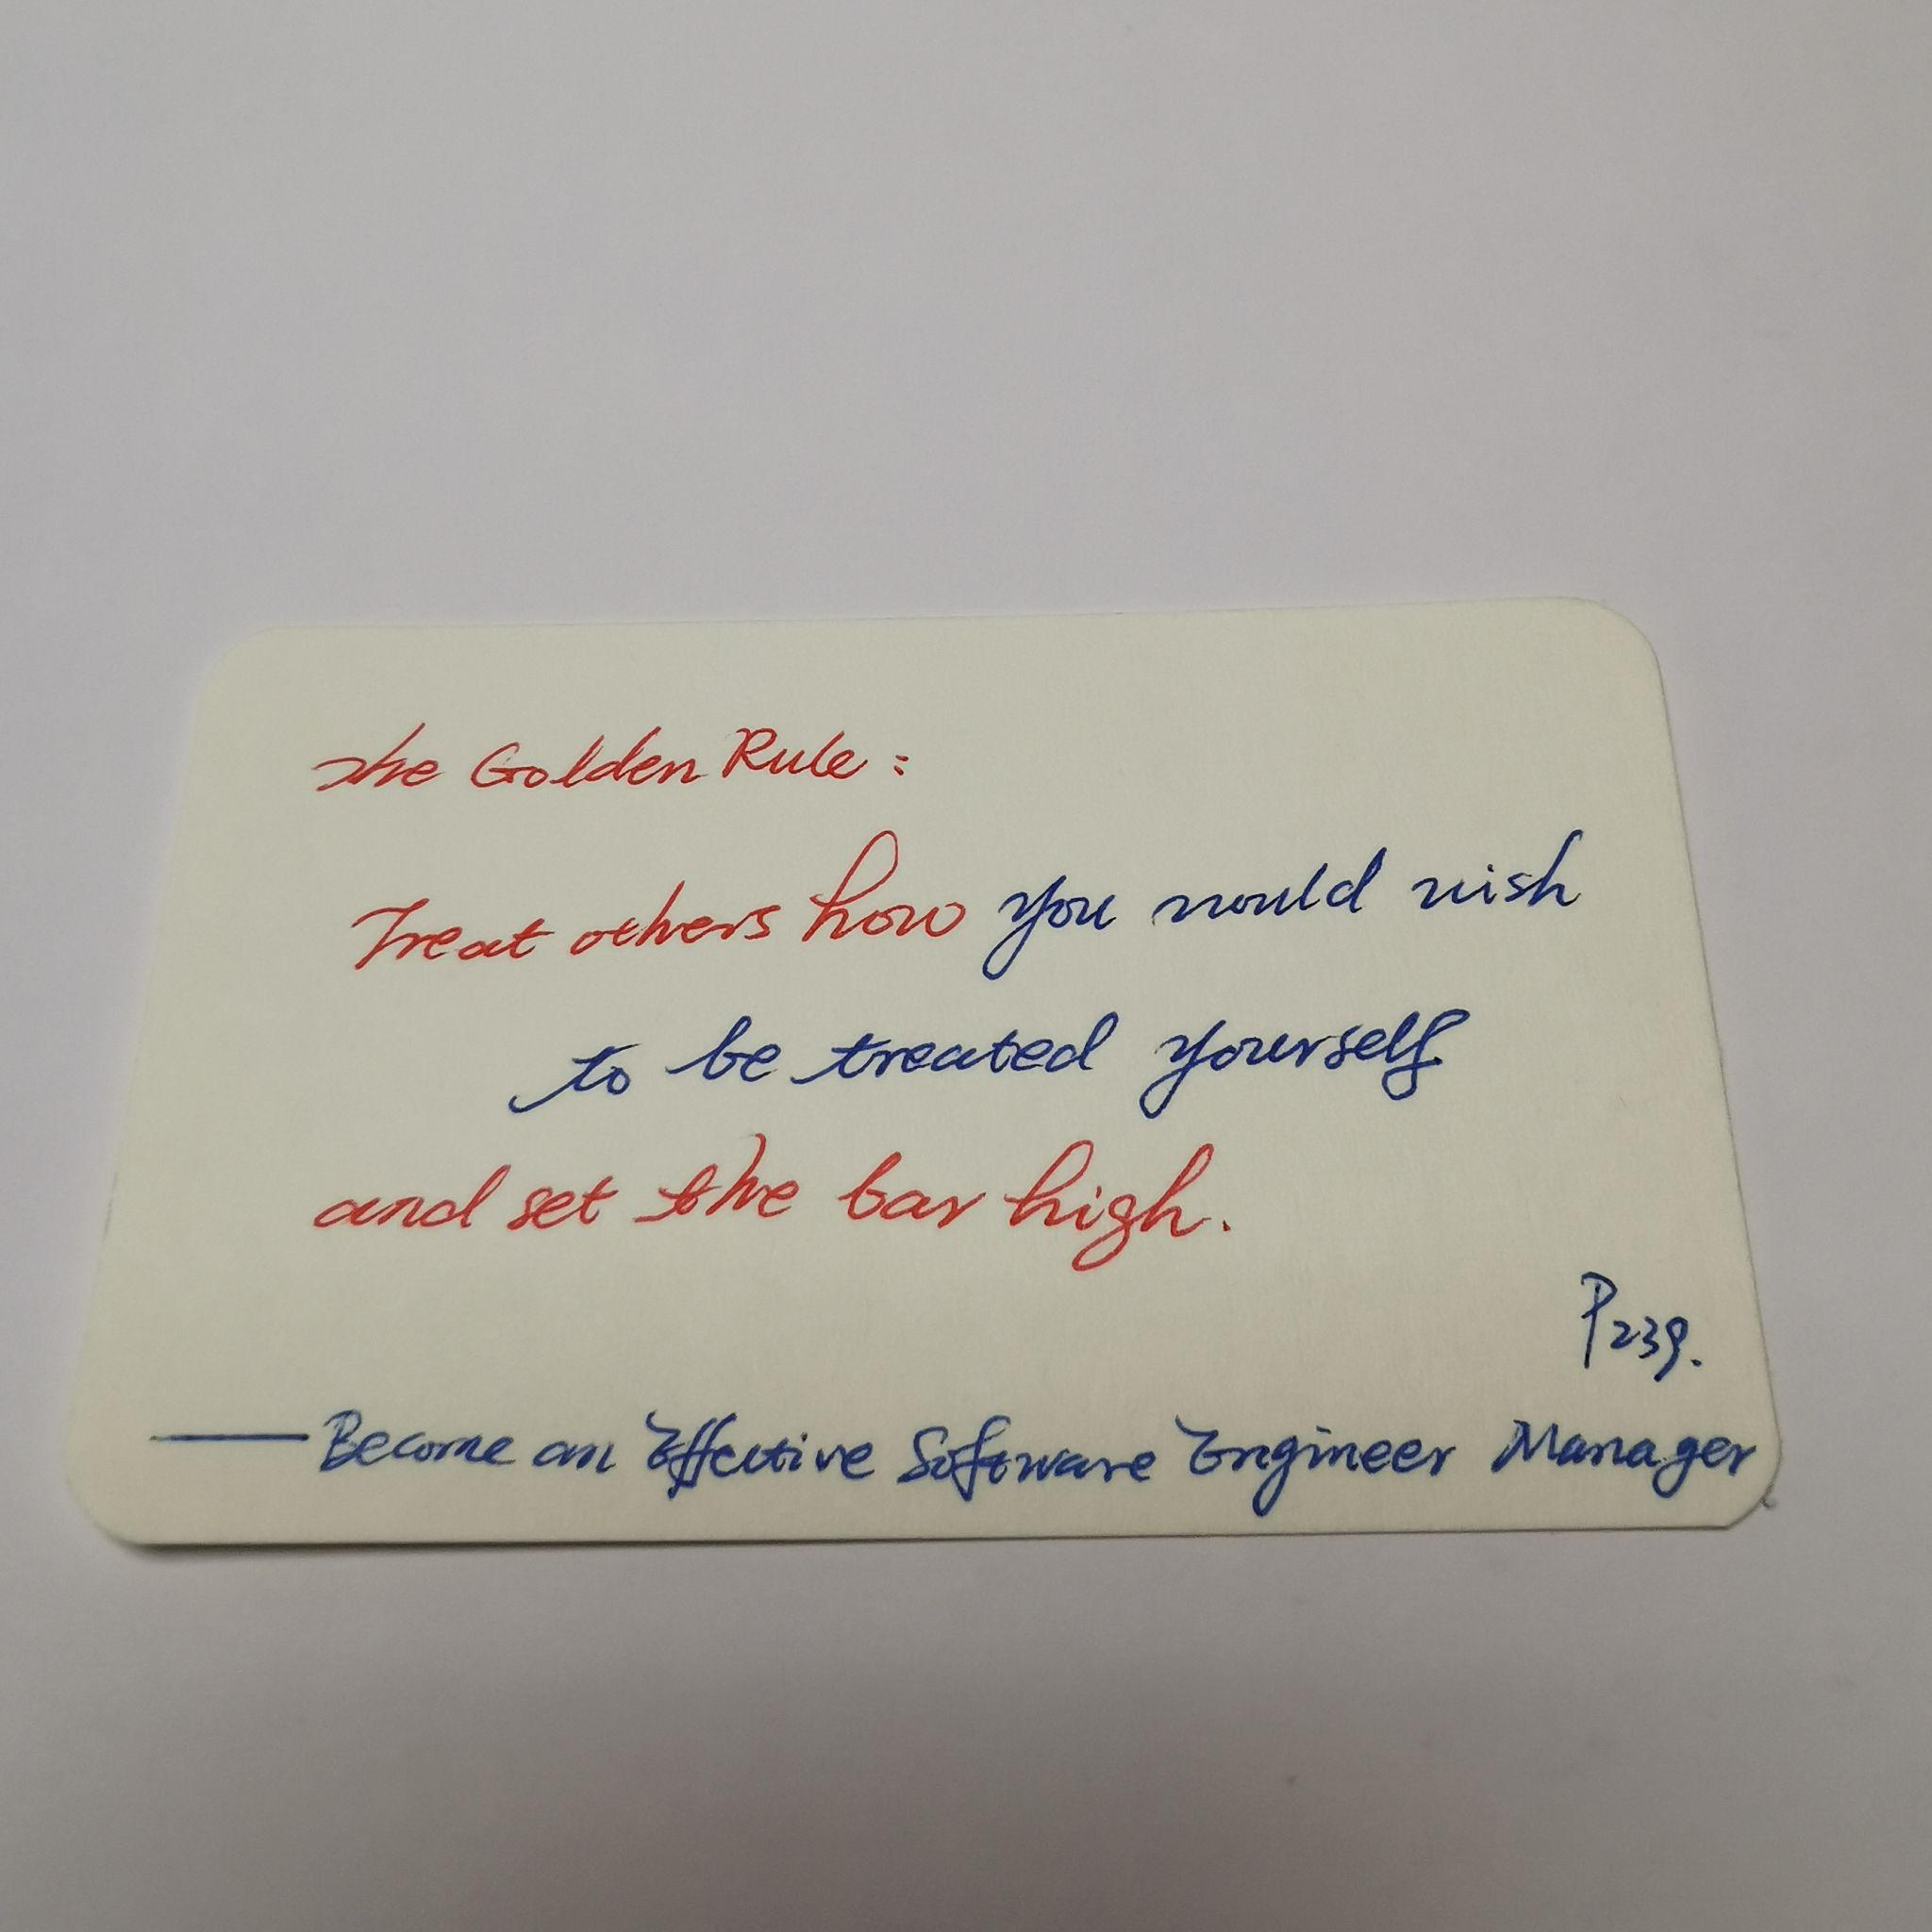 The Golden Rule:
Treat others how you would wish
to be treated yourself
and set the bar high.
P239.
——Become an Effective Software Engineer Manager